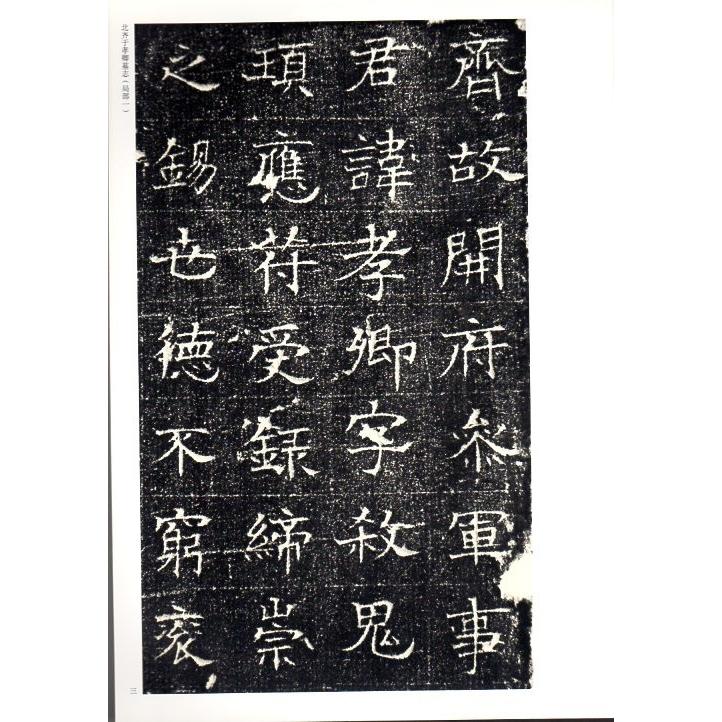 齊故開府叅軍事
君諱孝卿字敎鬼
頊應苻受錄締崇
之錫世德不窮衮
北齐于孝卿墓志（局部一）
三